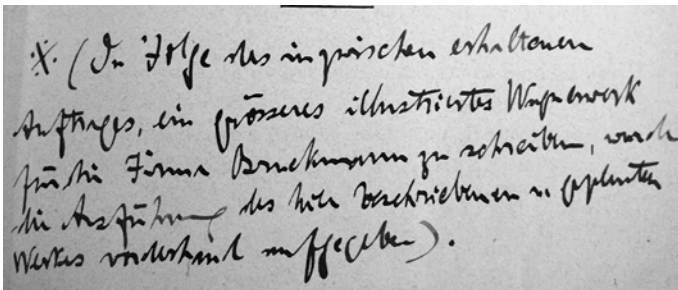 ·X· (In Folge des inzwischen erhaltenen
Auftrages, ein grösseres illustriertes Wagnerwerk
für die Firma Bruckmann zu schreiben, wurde
die Ausführung des hier beschriebenen u geplanten
Werkes vorderhand aufgegeben).